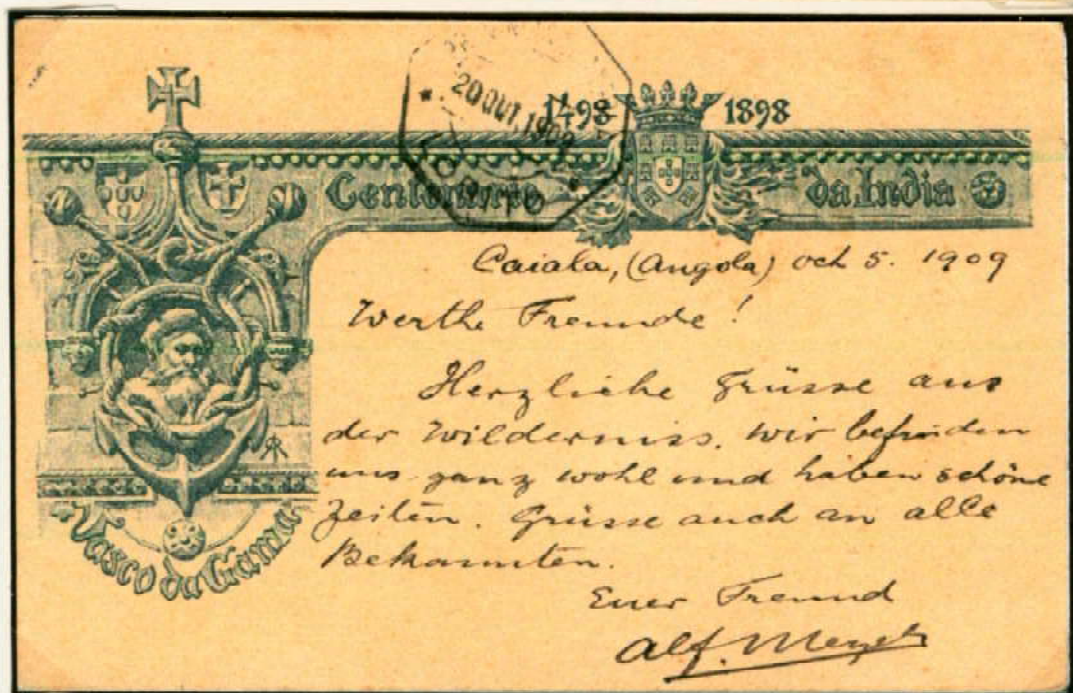 20 OUT. 1909
LOBITO
1498 1898
Centenario da India
Caiala, (Angola) Oct 5. 1909
Werthe Freunde!
Herzliche Grüsse aus
der Wilderniss. Wir befinden
uns ganz wohl und haben schöne
Zeiten. Grüsse auch an alle
Bekannten.
Euer Freund
Alf.
Vasco da Gama